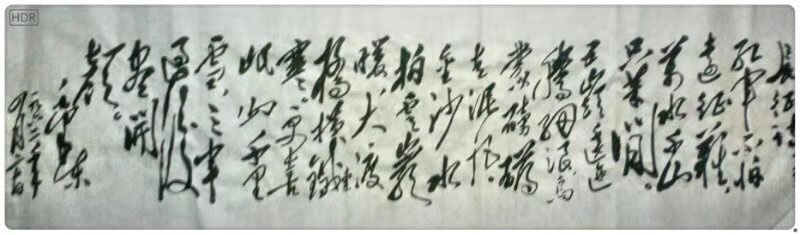 HDR
长征诗
红军不怕
远征难
万水千山
只等闲
五岭逶迤
腾细浪乌
蒙磅礴
走泥丸
金沙水
拍云崖
暖大渡
桥横铁索
寒更喜
岷山千里
雪三军
过后
尽开
颜
毛泽东
一九六二年